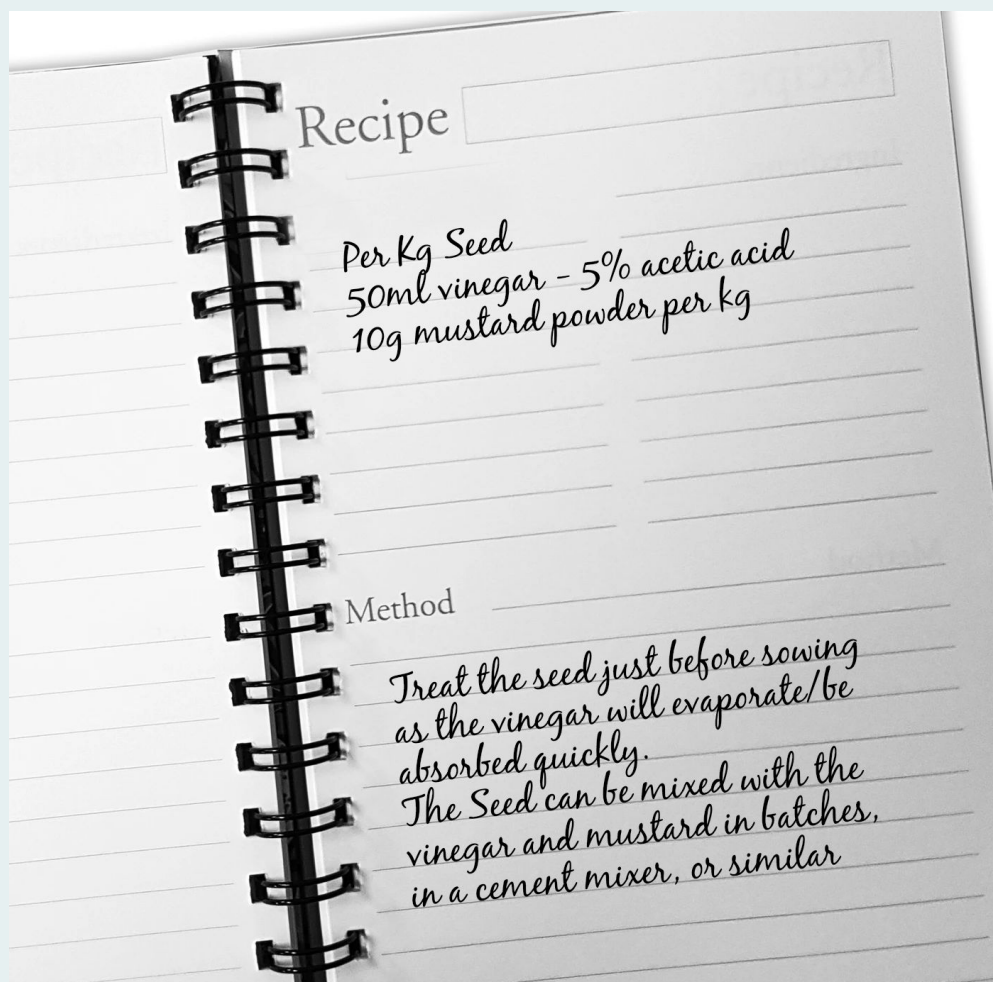 Recipe
Per Kg Seed
50ml vinegar - 5% acetic acid
10g mustard powder per kg
Method
Treat the seed just before sowing
as the vinegar will evaporate/be
absorbed quickly.
The Seed can be mixed with the
vinegar and mustard in batches,
in a cement mixer, or similar